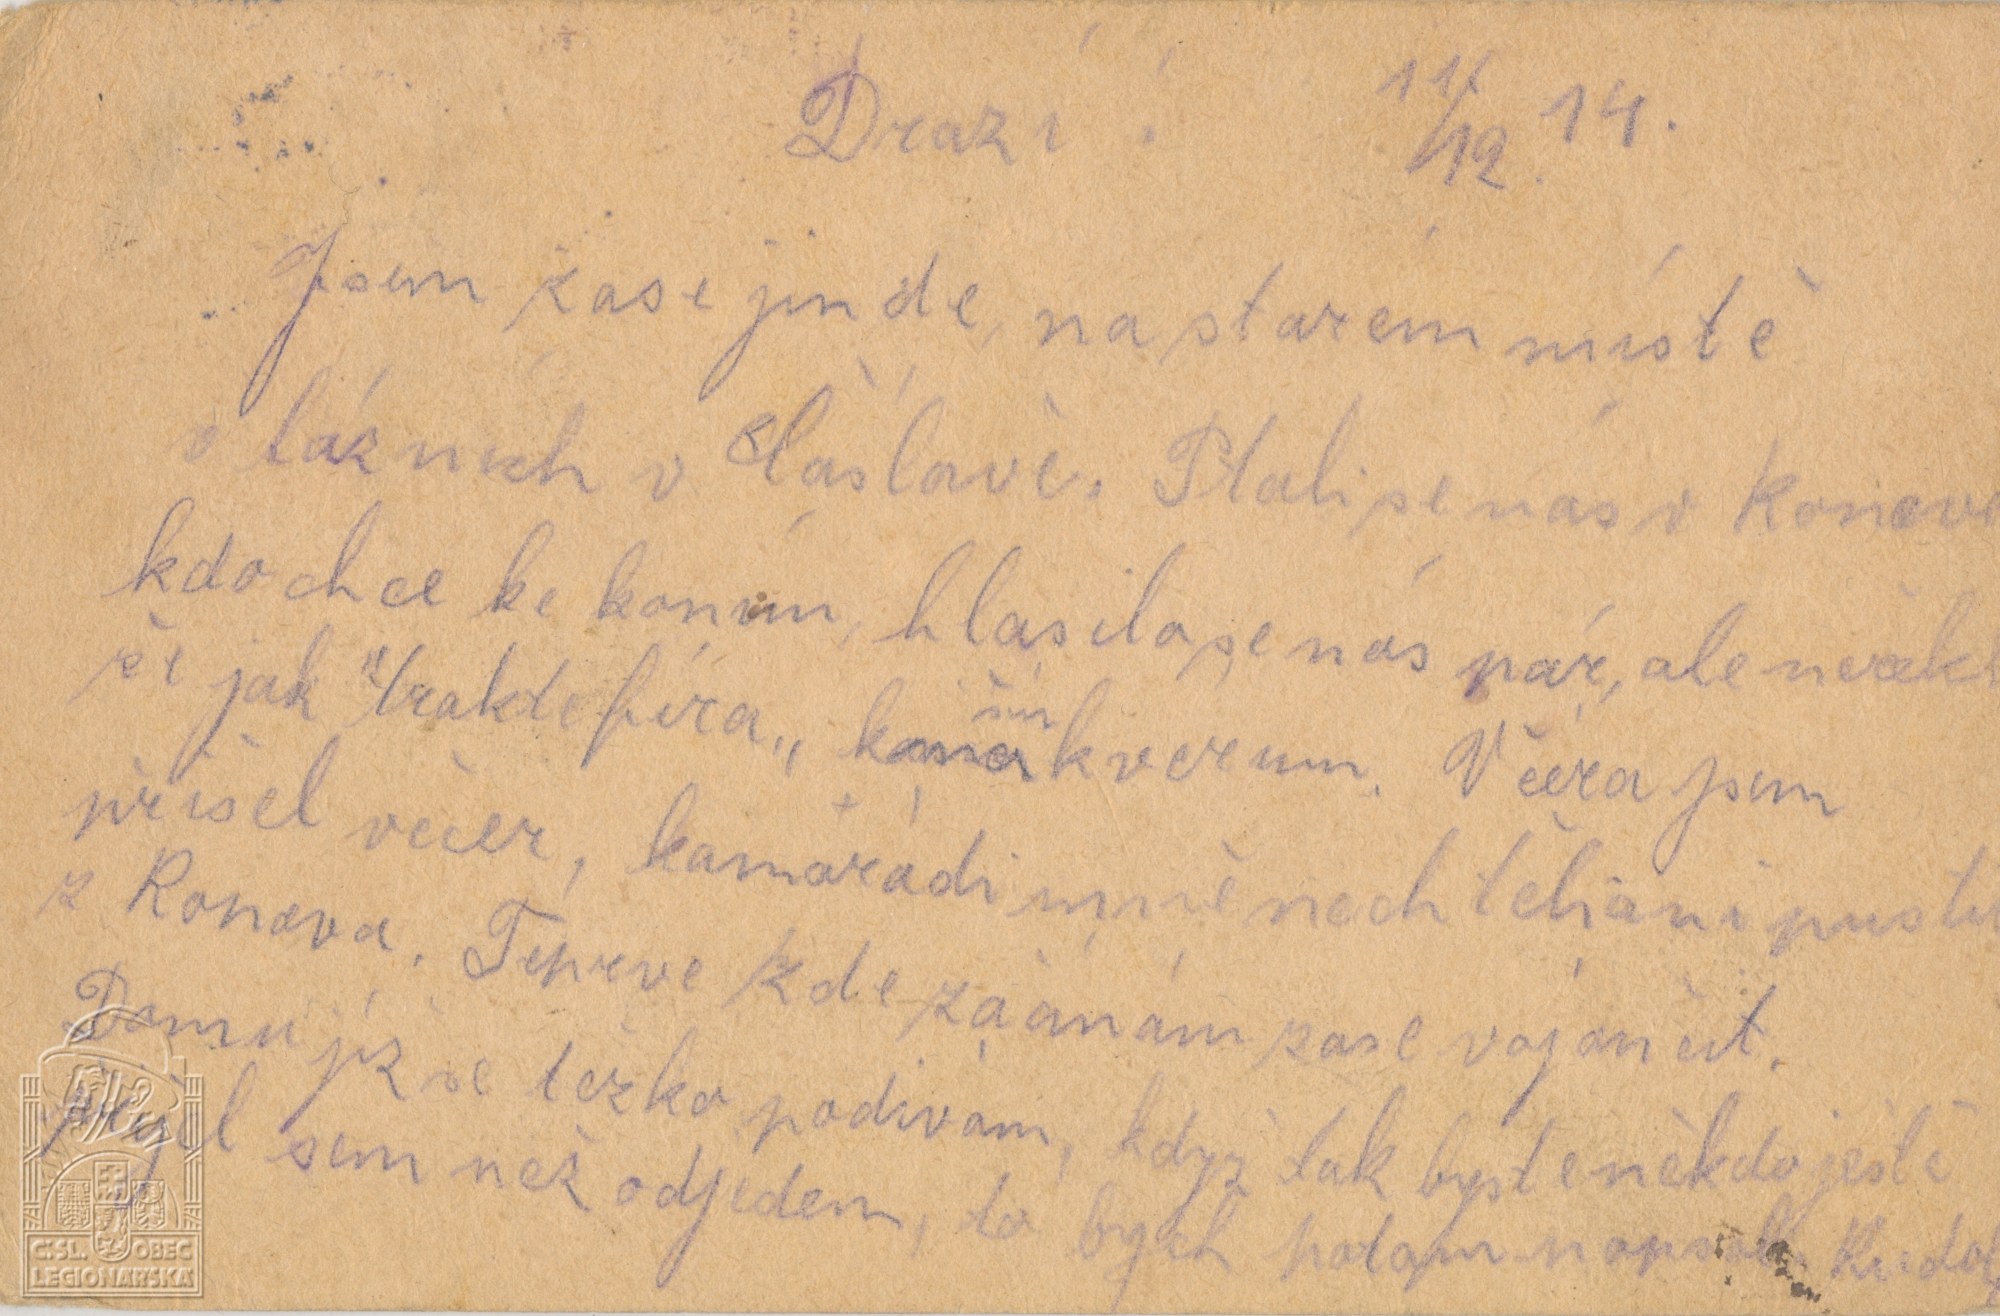 Drazí! 11/12. 14.
Jsem zase jinde, na starém místě
v lázních v Čáslavě. Ptali se nás v Ronově
kdo chce ke koním, hlásilo se nás pár, ale neřekli
že jak "trakdefíra", k šin kverum. Včera jsem
přišel večer, kamarádi mě nechtěli ani pustit
z Ronova. Teprve zde začínám zase vojančit.
Domu již se težko podívám, když tak byste někdo ještě
přijel sem než odjedem, to bych potom napsal. Rudolf
Č:SL. OBEC
LEGIONÁŘSKÁ